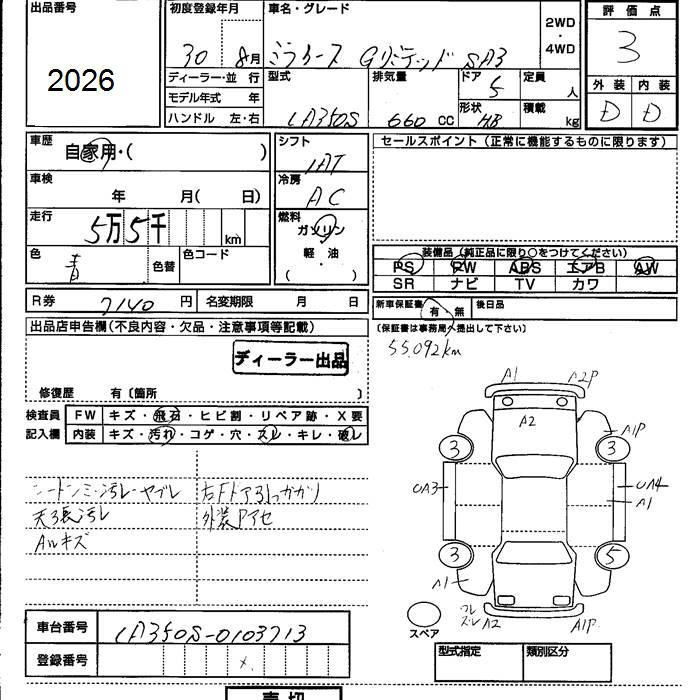 出品番号
2026
初度登録年月
30 8月
ディーラー・並 行
モデル年式 年
ハンドル 左・右
車名・グレード
ミライース Gリミテッド SA3
2WD
・
4WD
型式
LA350S
排気量
660 cc
ドア
5
形状
HB
定員
人
積載
kg
評価点
3
外装 内装
D D
車歴
自家用・( )
車検
年 月( 日)
走行
5万5千 km
色
青
色替
色コード
シフト
IAT
冷房
AC
燃料
ガソリン
軽・油
( )
セールスポイント(正常に機能するものに限ります)
装備品(純正品に限り○をつけてください)
PS PW ABS エアB AW
SR ナビ TV カワ
R券 7140 円 名変期限 月 日
新車保証書 有・無 後日品
(保証書は事務局へ提出して下さい)
55,092km
出品店申告欄(不良内容・欠品・注意事項等記載)
ディーラー出品
修復歴 有〔箇所 〕
検査員
記入欄
FW キズ・飛石・ヒビ割・リペア跡・X要
内装 キズ・汚れ・コゲ・穴・スレ・キレ・破レ
シートシミ・汚レ・ヤブレ
天張汚レ
Aルキズ
右Fドア引っかかり
外装アセ
A1
A2P
A2
A1P
3
3
UA3
UA4
A1
3
5
A1
ワレ
ズレ
A2
A1P
スペア
車台番号 LA350S-0103713
登録番号 x
型式指定 類別区分
売切